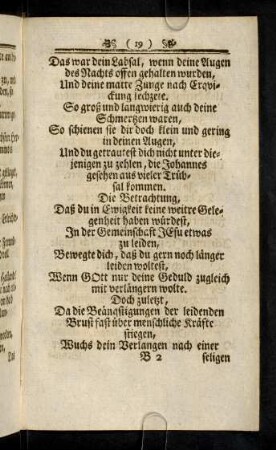 ( 19 )
Das war dein Labsal, wenn deine Augen
des Nachts offen gehalten wurden,
Und deine matte Zunge nach Erqvi-
ckung lechzete.
So groß und langwierig auch deine
Schmertzen waren,
So schienen sie dir doch klein und gering
in deinen Augen,
Und du getrautest dich nicht unter die-
jenigen zu zehlen, die Johannes
gesehen aus vieler Trüb-
sal kommen.
Die Betrachtung,
Daß du in Ewigkeit keine weitre Gele-
genheit haben würdest,
In der Gemeinschaft JEsu etwas
zu leiden,
Bewegte dich, daß du gern noch länger
leiden woltest,
Wenn GOtt nur deine Geduld zugleich
mit verlängern wolte.
Doch zuletzt,
Da die Beängstigungen der leidenden
Brust fast über menschliche Kräfte
stiegen,
Wuchs dein Verlangen nach einer
B 2 seligen